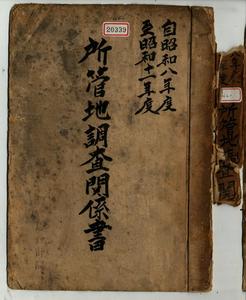 20339
自昭和八年度
至昭和十一年度
所管地調査関係書